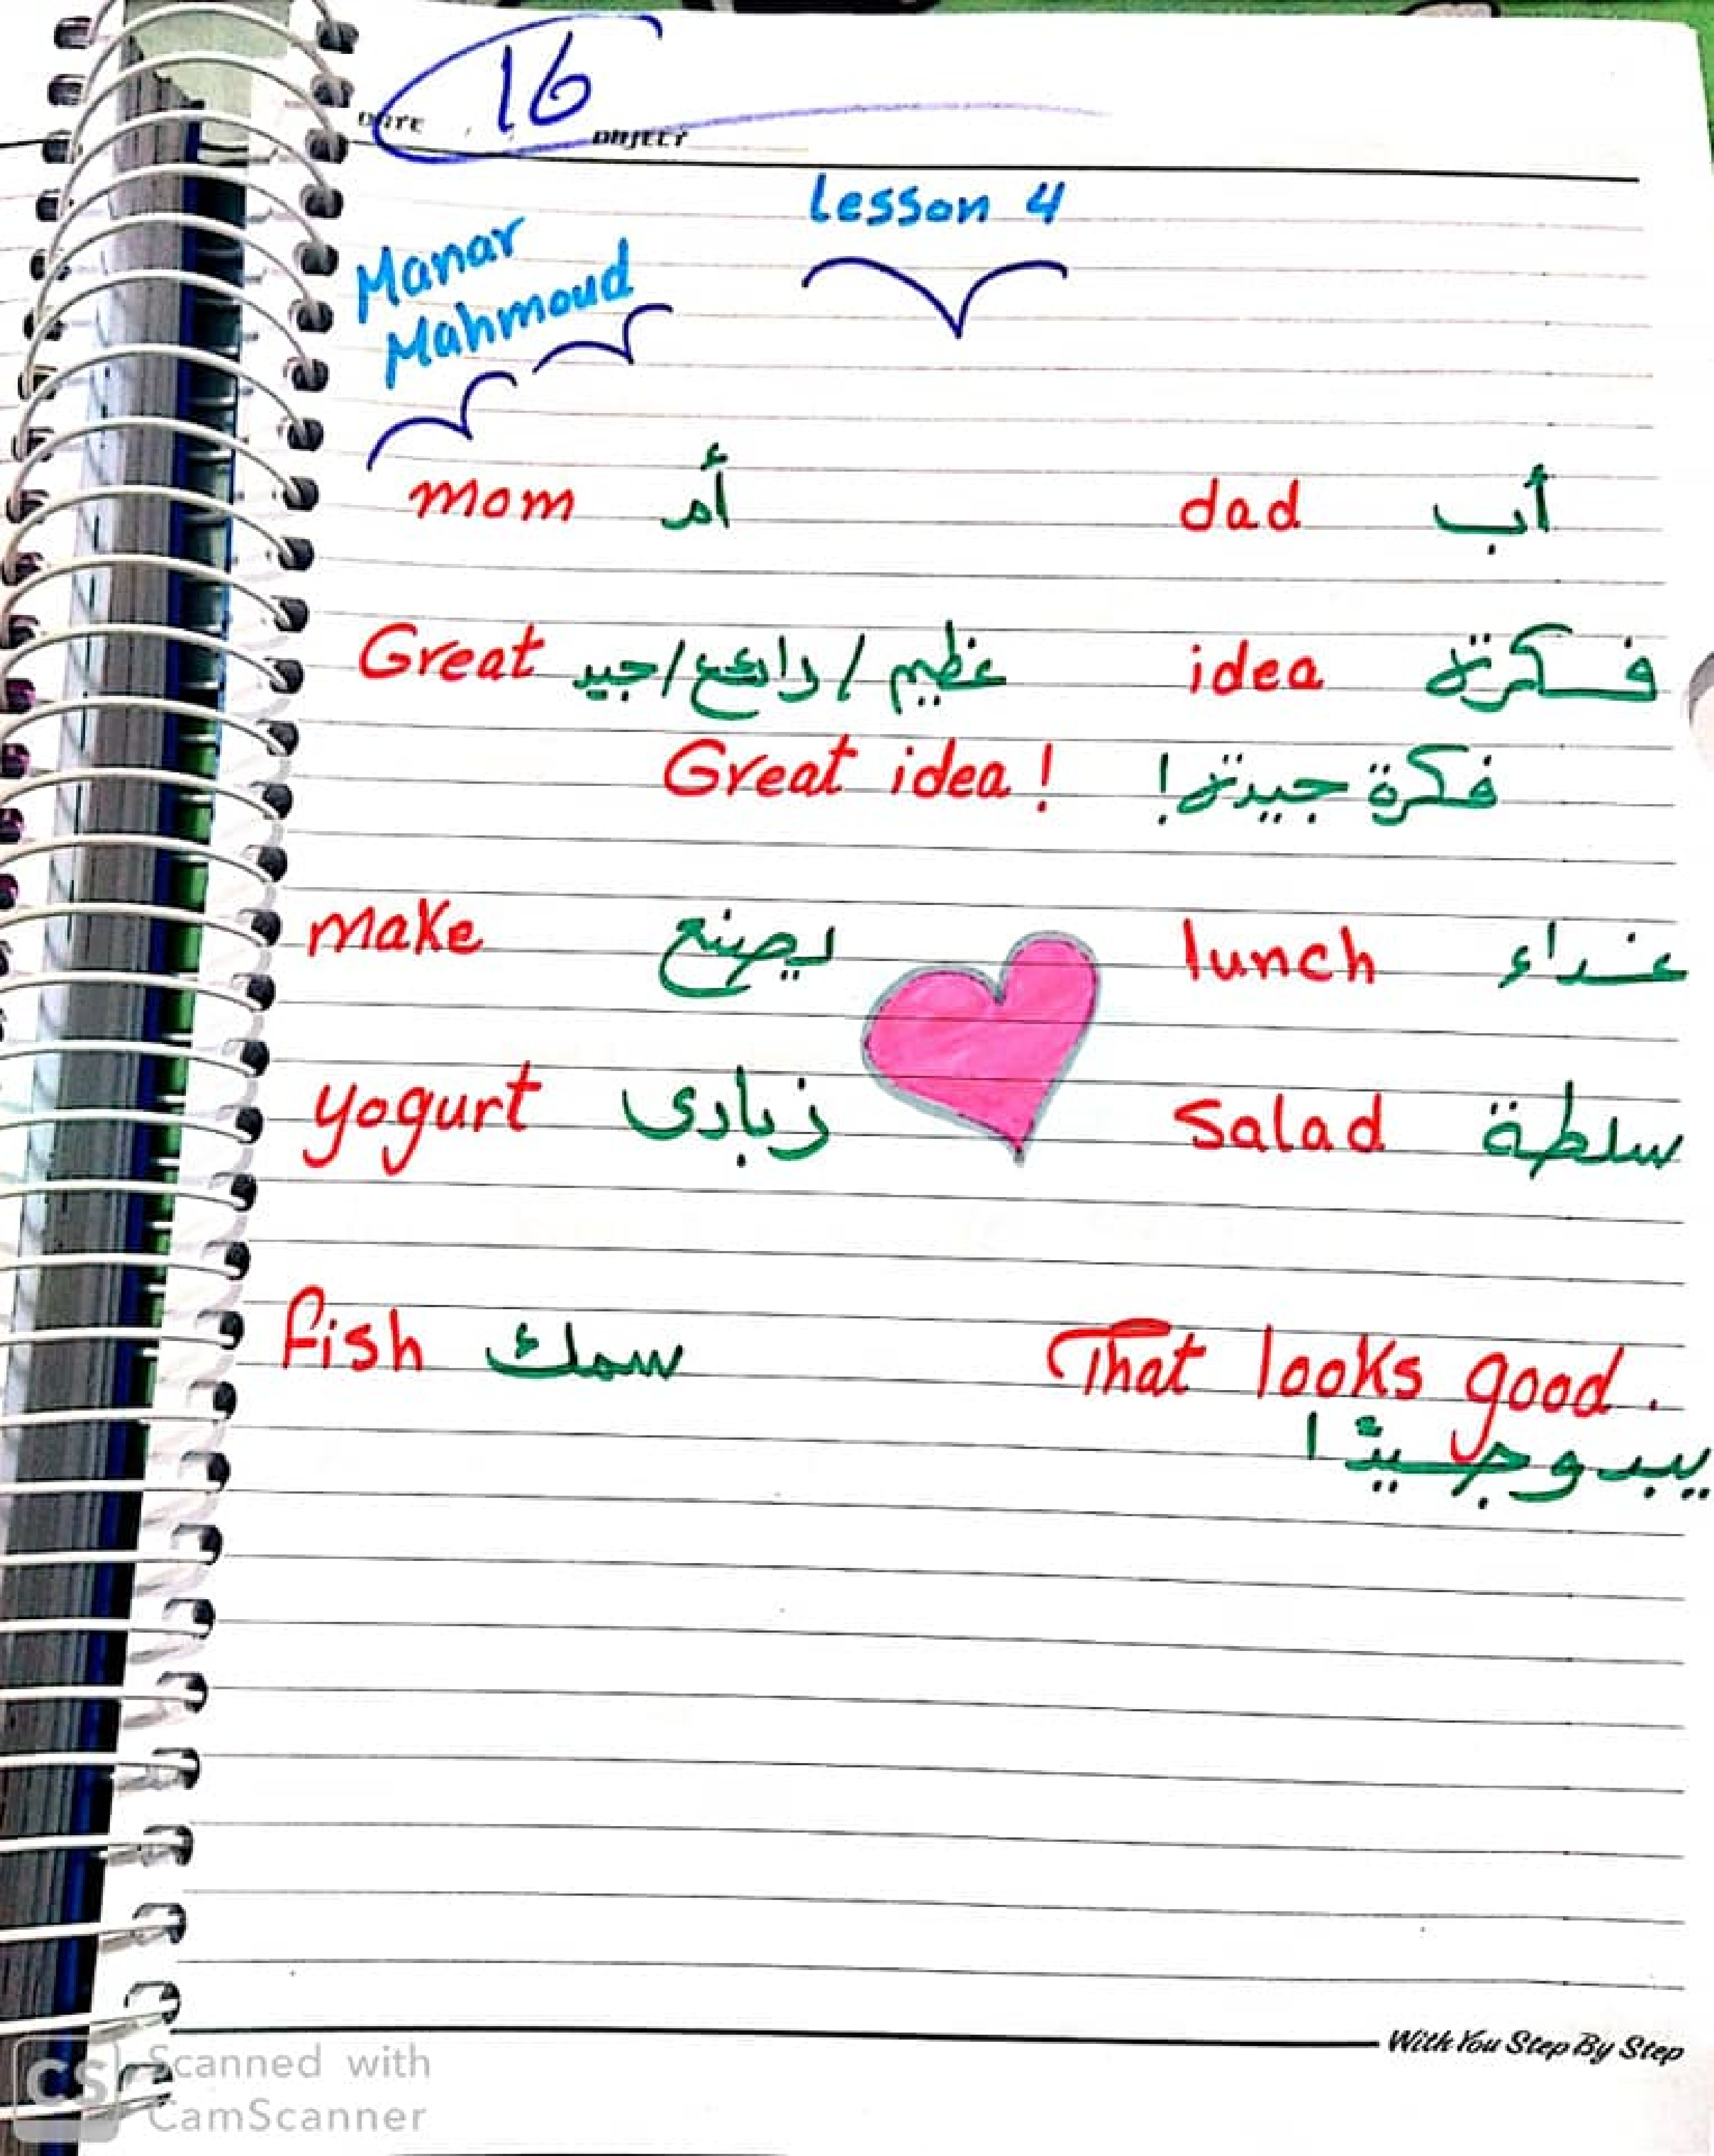 16
DATE / / OBJECT
Lesson 4
Manar
Mahmoud
mom أم dad أب
Great عظيم / رائع / جيد idea فكرة
Great idea! فكرة جيدة!
make يصنع lunch غداء
yogurt زبادى salad سلطة
fish سمك That looks good.
يبدو جيدًا
With You Step By Step
CS Scanned with
CamScanner